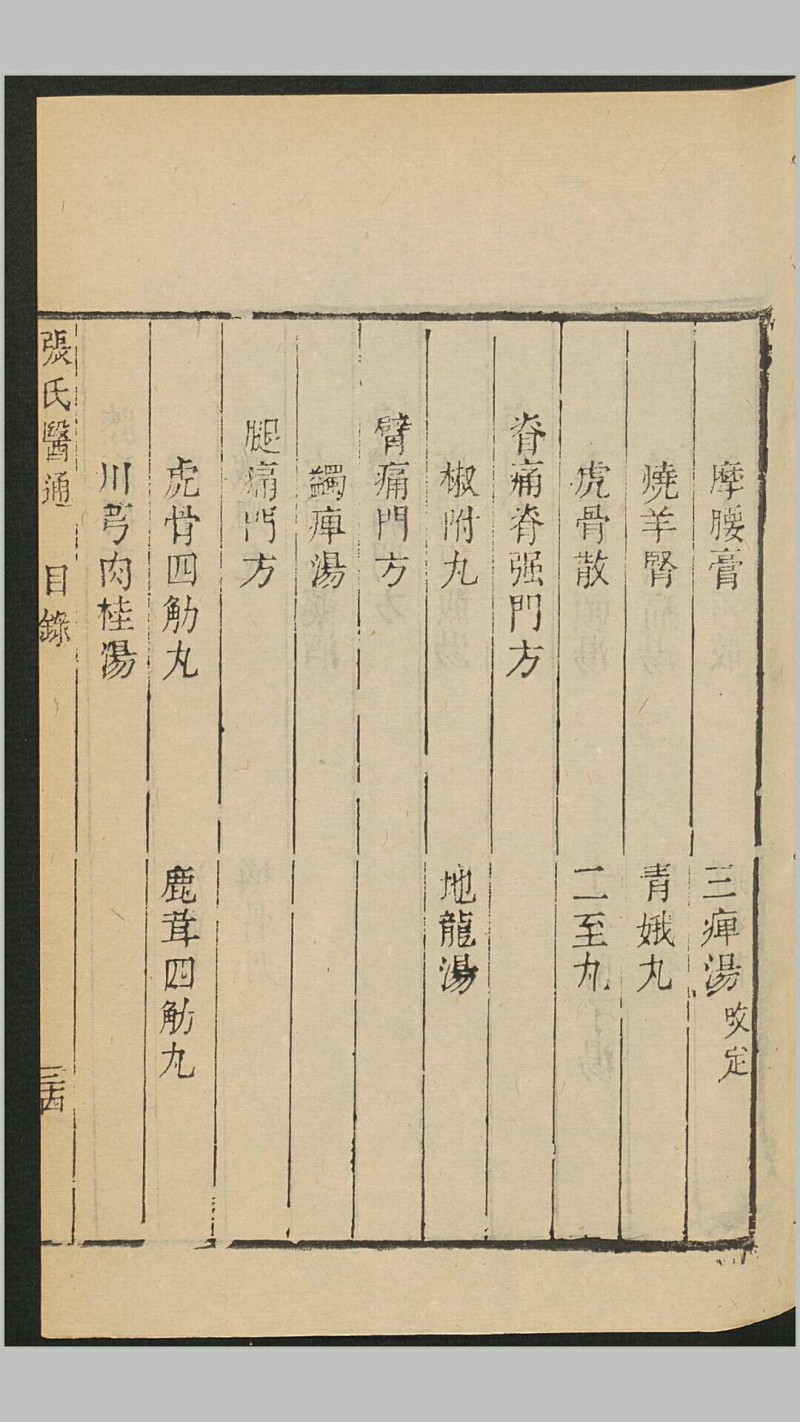 摩腰膏 三痺湯 改定
燒羊腎 青娥丸
虎骨散 二至丸
脊痛脊强門方
椒附丸 地龍湯
臂痛門方
蠲痺湯
腿痛門方
虎骨四觔丸 鹿茸四觔丸
川芎肉桂湯
張氏醫通 目錄 三古